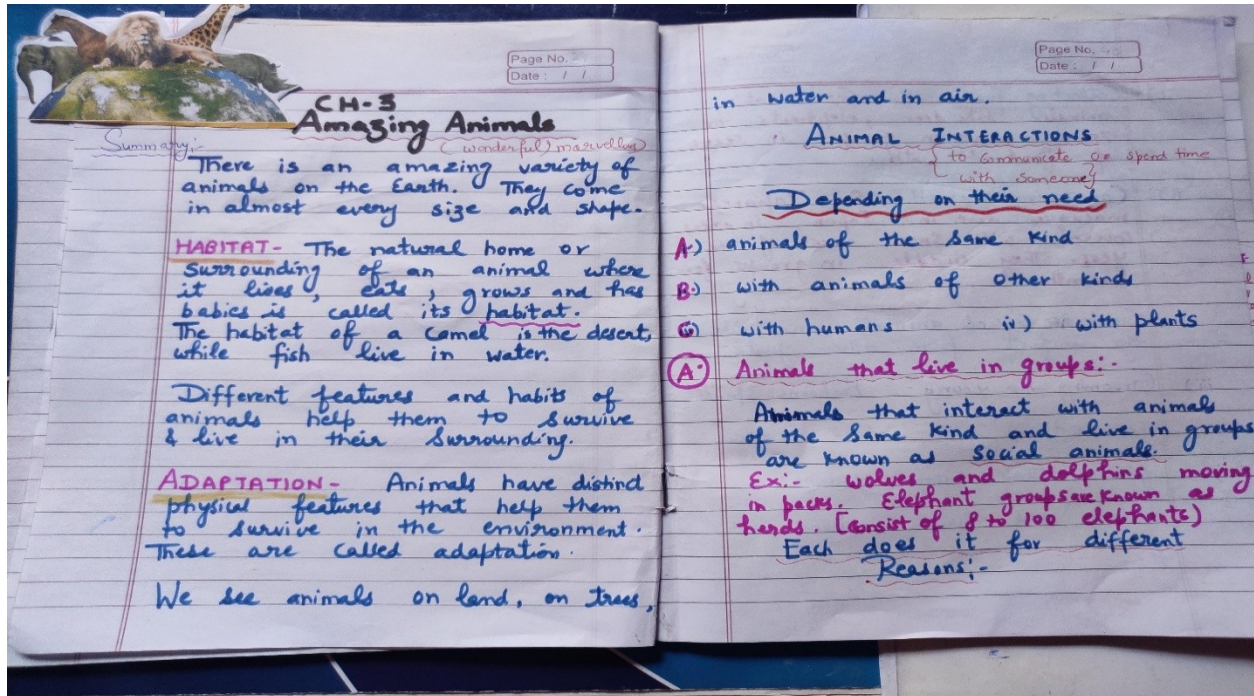 Page No.
Date : / /
CH-3
Amazing Animals
Summary:-
(wonderful) marvellous)
There is an amazing variety of
animals on the Earth. They come
in almost every size and shape.
HABITAT- The natural home or
surrounding of an animal where
it lives, eats, grows and has
babies is called its habitat.
The habitat of a camel is the desert,
while fish live in water.
Different features and habits of
animals help them to survive
& live in their surrounding.
ADAPTATION- Animals have distinct
physical features that help them
to survive in the environment.
These are called adaptation.
We see animals on land, on trees,
Page No.
Date : / /
in water and in air.
ANIMAL INTERACTIONS
{to communicate or spend time
with someone}
Depending on their need
A.) animals of the same kind
B.) with animals of other kinds
C) with humans iv) with plants
A. Animals that live in groups:-
Animals that interact with animals
of the same kind and live in groups
are known as social animals.
Ex:- wolves and dolphins moving
in packs. Elephant groups are known as
herds. [consist of 8 to 100 elephants)
Each does it for different
Reasons:-